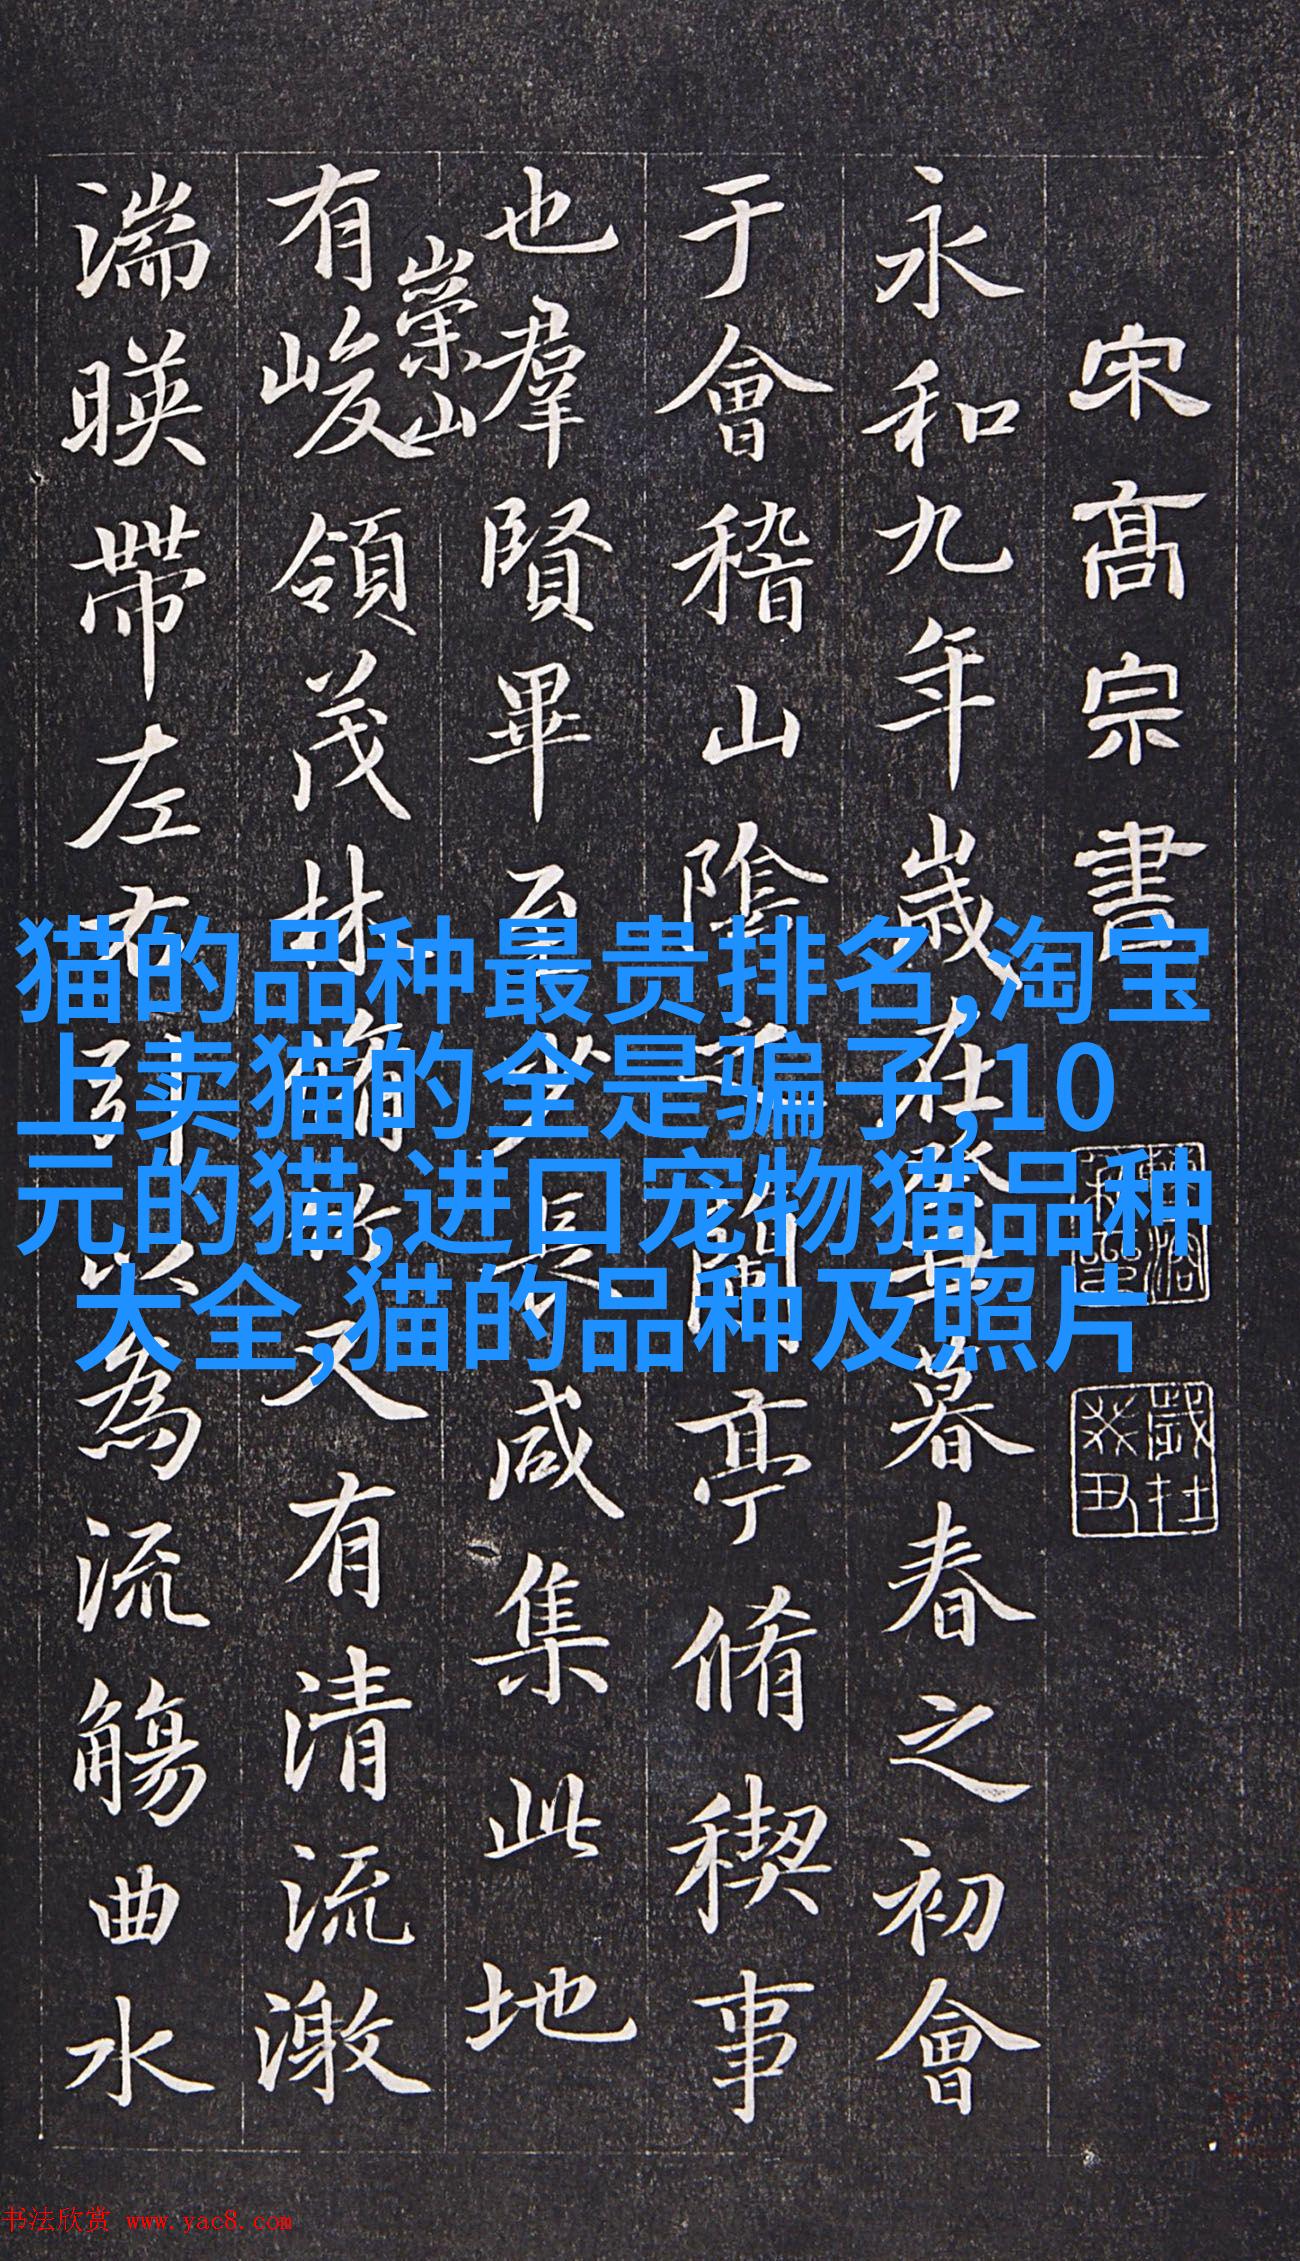 宋髙宗書
永和九年歲在癸丑暮春之初會
于會稽山陰之蘭亭脩稧事
也羣賢畢至少長咸集此地
有崇山峻領茂林脩竹又有清流激
湍暎帶左右引以為流觴曲水
歲在癸丑
猫的品种最贵排名,淘宝
上卖猫的全是骗子,10
元的猫,进口宠物猫品种
大全,猫的品种及照片
书法欣赏 www.yac8.com